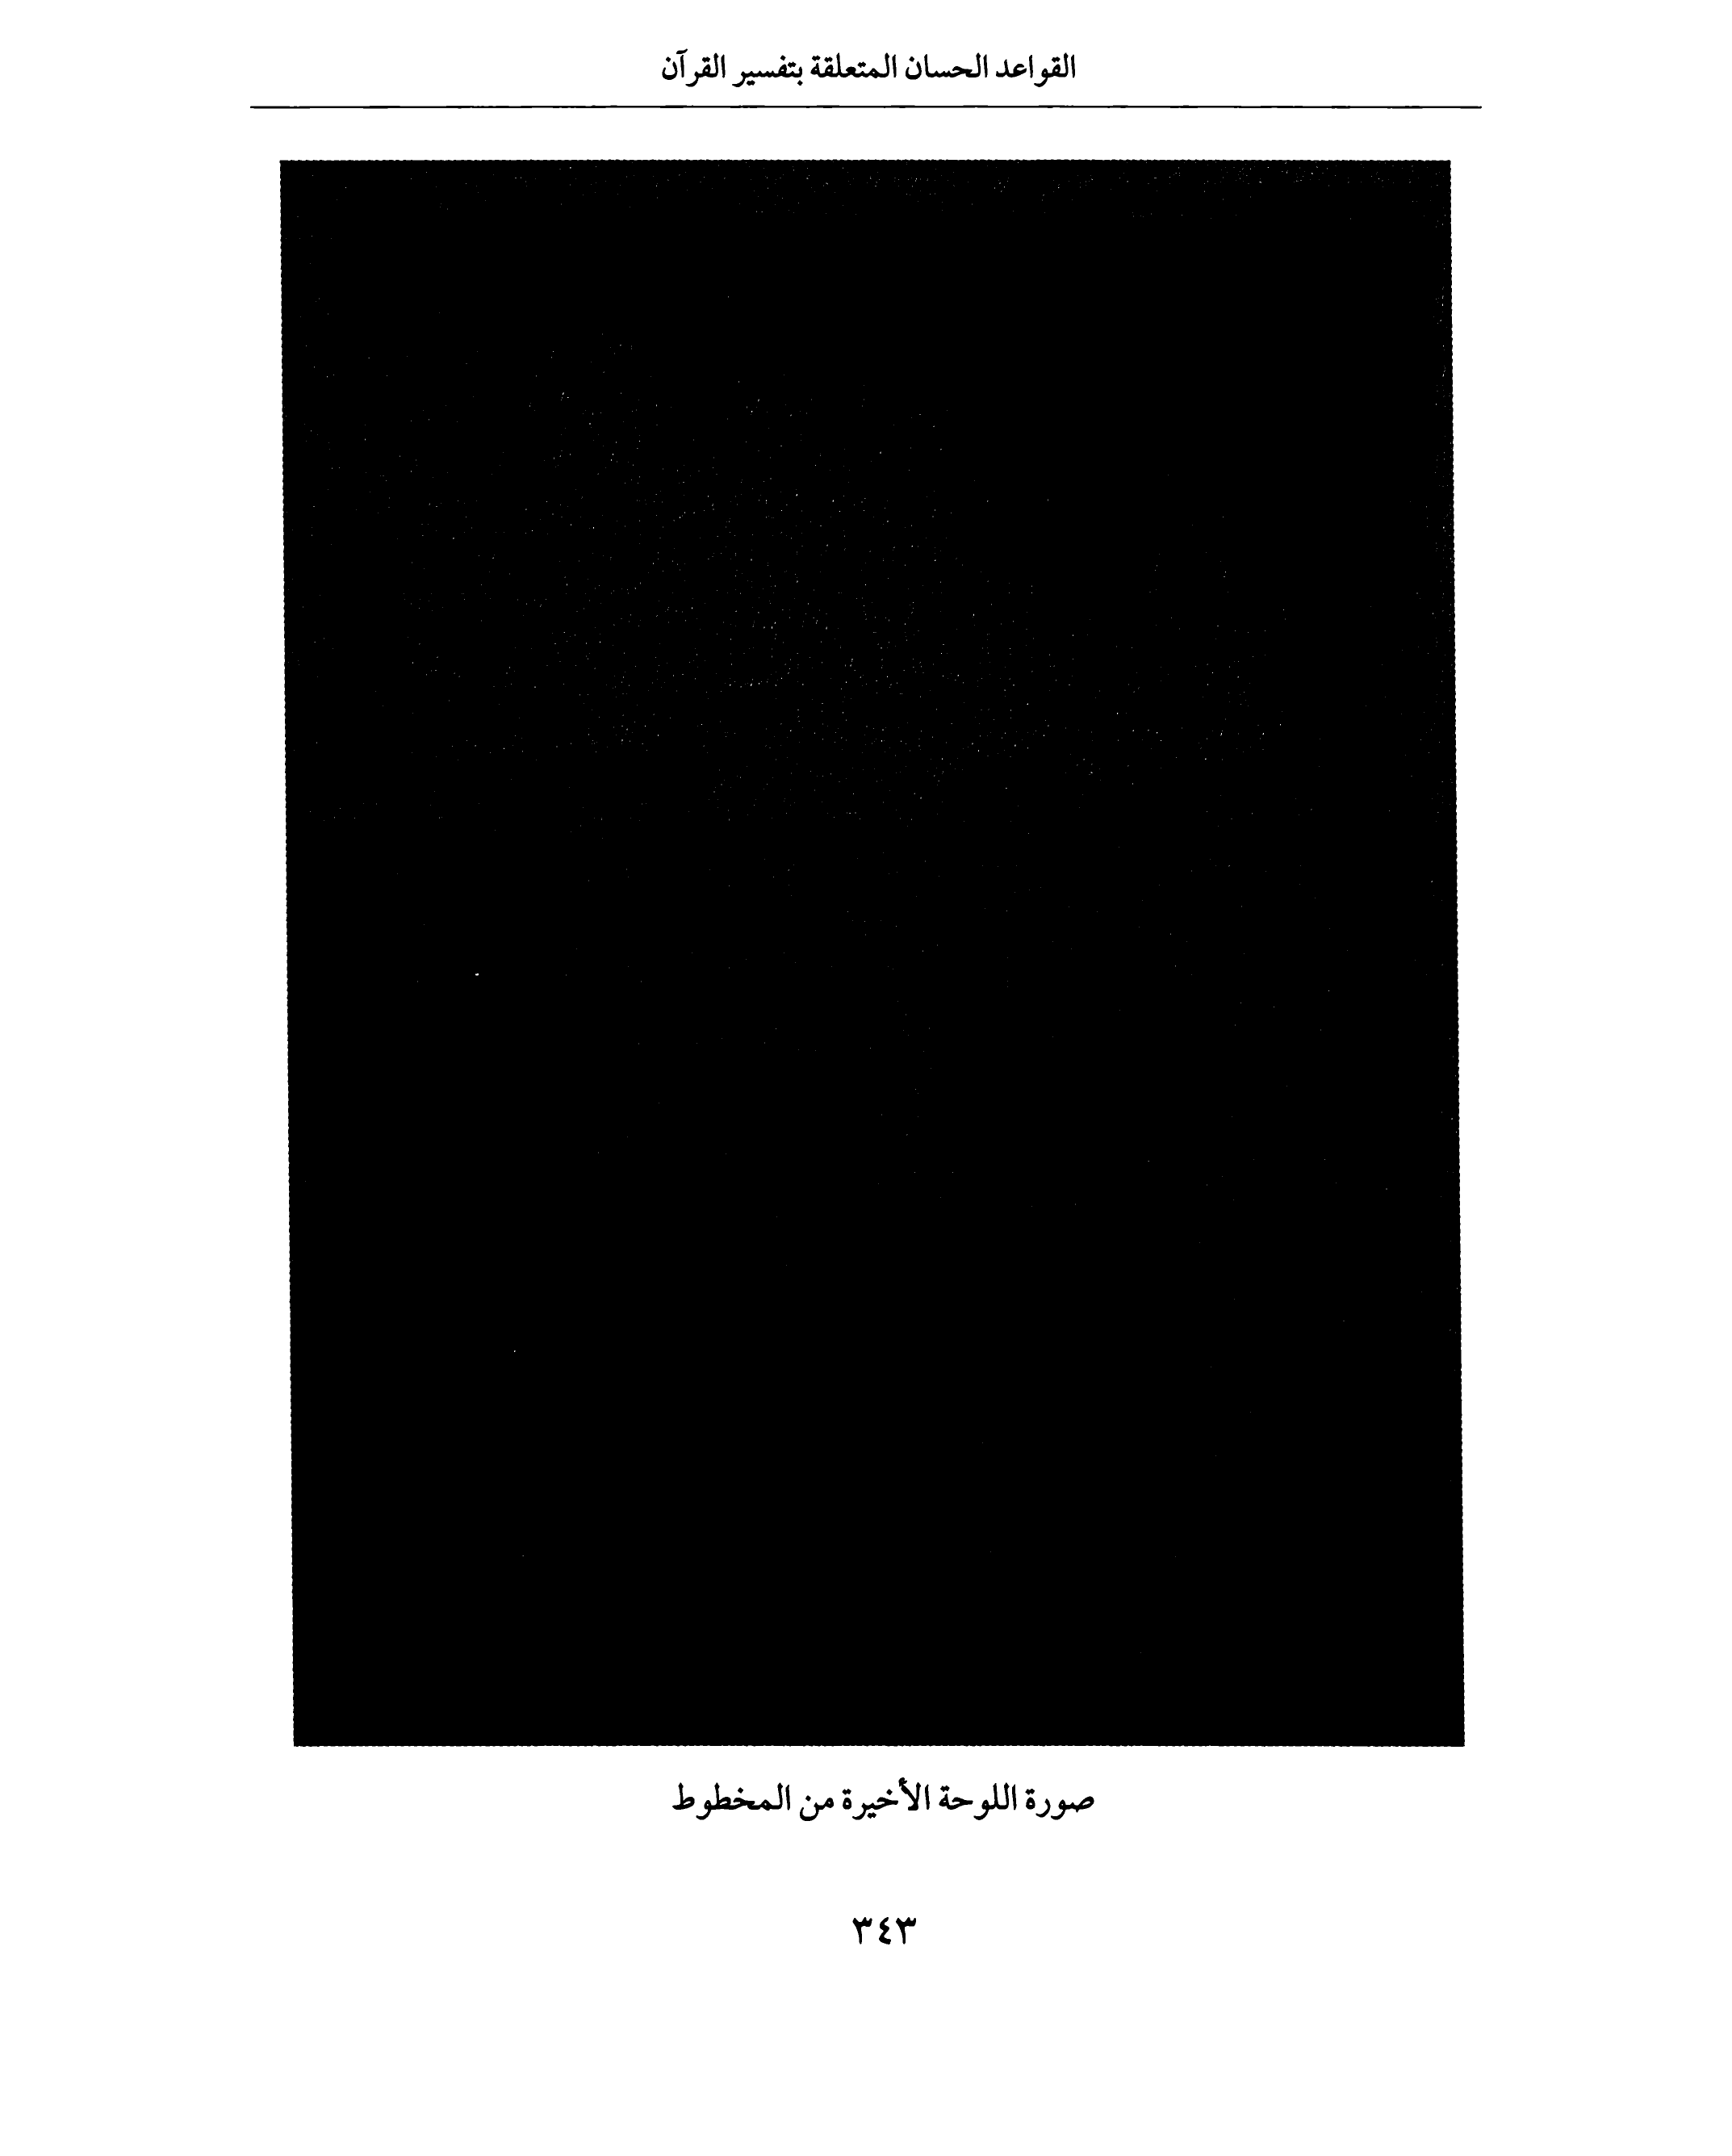 القواعد الحسان المتعلقة بتفسير القرآن
صورة اللوحة الأخيرة من المخطوط
٣٤٣